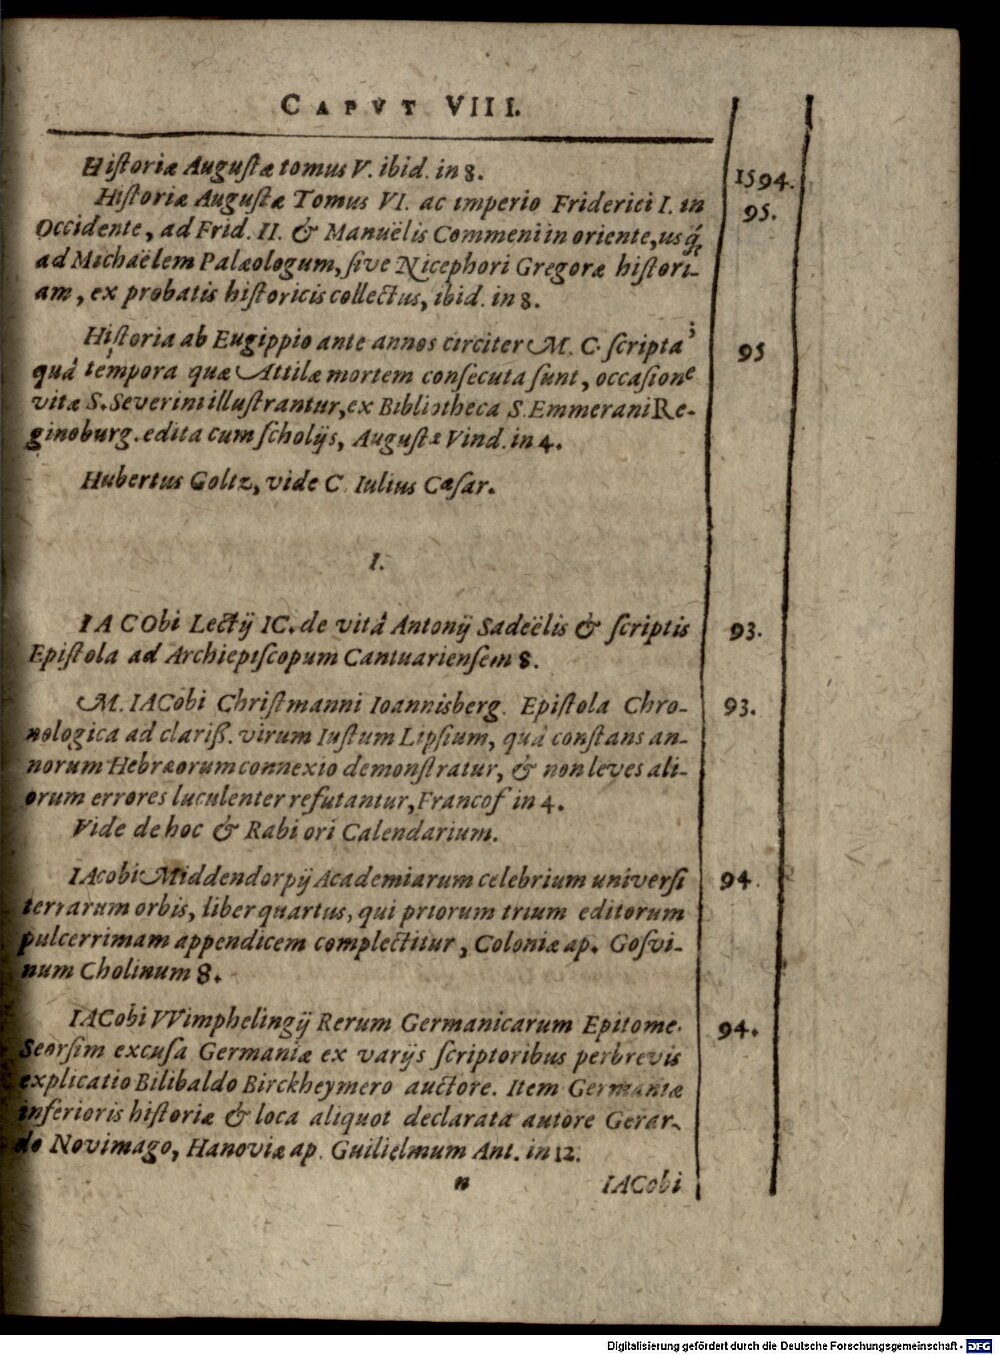 CAPVT VIII.
Hiſtoriæ Auguſtæ tomus V. ibid. in 8. 1594.
Hiſtoriæ Auguſtæ Tomus VI. ac imperio Friderici I. in 95.
Occidente, ad Frid. II. & Manuëlis Commeni in oriente, usq́;
ad Michaëlem Palæologum, ſive Nicephori Gregoræ hiſtori-
am, ex probatis hiſtoricis collectus, ibid. in 8.
Hiſtoria ab Eugippio ante annos circiter M. C. ſcripta 95
quâ tempora quæ Attilæ mortem conſecuta ſunt, occaſione
vitæ S. Severini illuſtrantur, ex Bibliotheca S. Emmerani Re-
ginoburg. edita cum ſcholijs, Auguſtæ Vind. in 4.
Hubertus Goltz, vide C. Iulius Cæſar.
I.
IACObi Lectij IC. de vitâ Antonij Sadeëlis & ſcriptis 93.
Epiſtola ad Archiepiſcopum Cantuarienſem 8.
M. IACobi Chriſtmanni Ioannisberg. Epiſtola Chro- 93.
nologica ad clariß. virum Iuſtum Lipſium, quâ conſtans an-
norum Hebræorum connexio demonſtratur, & non leves ali-
orum errores luculenter refutantur, Francof in 4.
Vide de hoc & Rabi ori Calendarium.
IAcobi Middendorpij Academiarum celebrium univerſi 94.
terrarum orbis, liber quartus, qui priorum trium editorum
pulcerrimam appendicem complectitur, Coloniæ ap. Goſvi-
num Cholinum 8.
IACobi VVimphelingij Rerum Germanicarum Epitome. 94.
Seorſim excuſa Germaniæ ex varijs ſcriptoribus perbrevis
explicatio Bilibaldo Birckheymero auctore. Item Germaniæ
inferioris hiſtoriæ & loca aliquot declarata autore Gerar-
do Novimago, Hanoviæ ap. Guilielmum Ant. in 12.
n IACobi
Digitalisierung gefördert durch die Deutsche Forschungsgemeinschaft - DFG